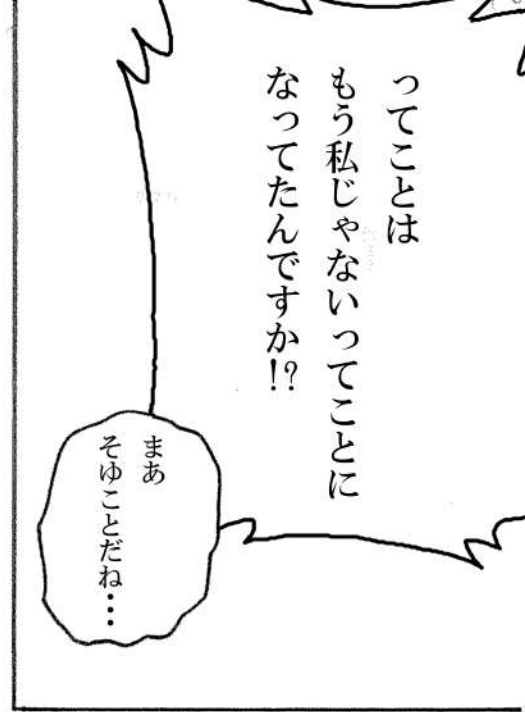 ってことは
もう私じゃないってことに
なってたんですか!?
まあ
そゆことだね…